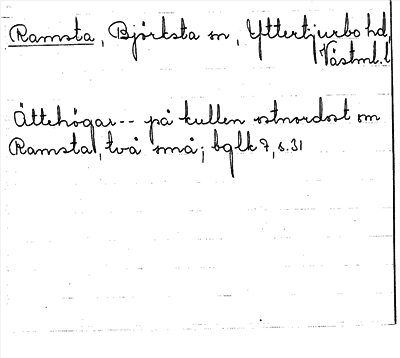 Ramsta, Björksta sn, Yttertjurbo hd,
Västml.l
Ättehögar-- på kullen ostnordost om
Ramsta, två små; bglk 7, s.31